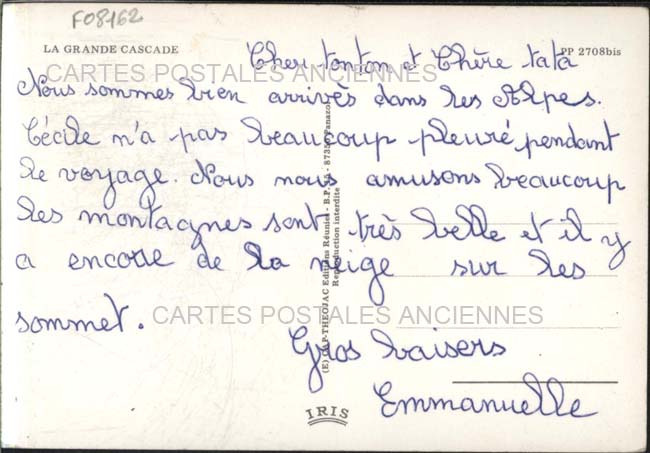 F08162
LA GRANDE CASCADE
PP 2708bis
Cher tonton et Chère tata
CARTES POSTALES ANCIENNES
Nous sommes bien arrivès dans les Alpes.
Cécile n'a pas beaucoup pleuré pendant
le voyage. Nous nous amusons beaucoup
les montagnes sont très belle et il y
a encore de la neige sur les
sommet.
CARTES POSTALES ANCIENNES
Gros baisers
Emmanuelle
(E) CAP-THEOJAC Editions Réunies - B.P. - 8735 Panazol
Reproduction interdite
IRIS